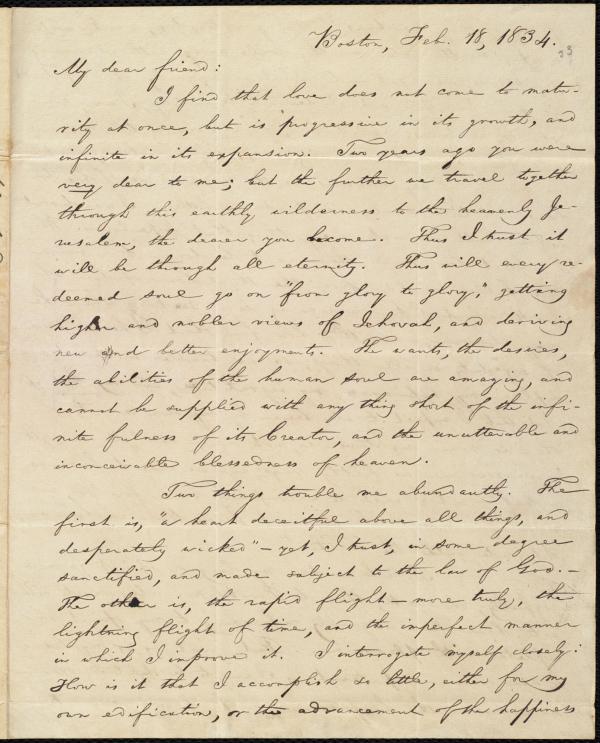 Boston, Feb. 18, 1834.
33
My dear friend:
I find that love does not come to matu-
rity at once, but is progressive in its growth, and
infinite in its expansion. Two years ago you were
very dear to me; but the further we travel together
through this earthly wilderness to the heavenly Je-
rusalem, the dearer you become. Thus I trust it
will be through all eternity. Thus will every re-
deemed soul go on "from glory to glory," getting
higher and nobler views of Jehovah, and deriving
new and better enjoyments. The wants, the desires,
the abilities of the human soul are amazing, and
cannot be supplied with any thing short of the infi-
nite fulness of its Creator, and the unutterable and
inconceivable blessedness of heaven.
Two things trouble me abundantly. The
first is, "a heart deceitful above all things, and
desperately wicked" – yet, I trust, in some degree
sanctified, and made subject to the law of God. –
The other is, the rapid flight – more truly, the
lightning flight of time, and the imperfect manner
in which I improve it. I interrogate myself closely:
How is it that I accomplish so little, either for my
own edification, or the advancement of the happiness